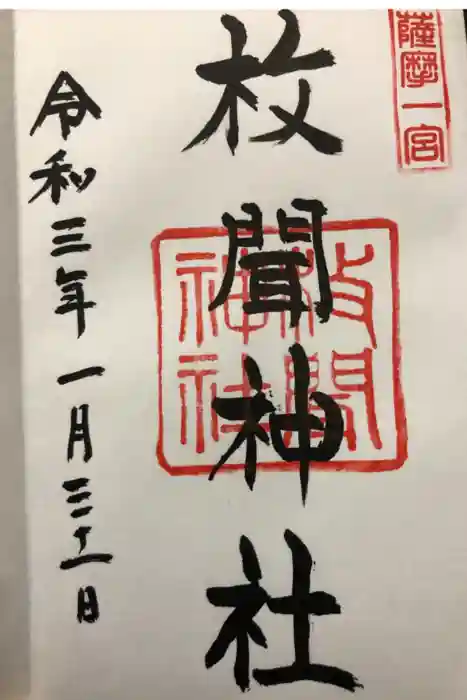 薩摩一宮
枚聞神社
枚聞
神社
令和三年一月三十一日